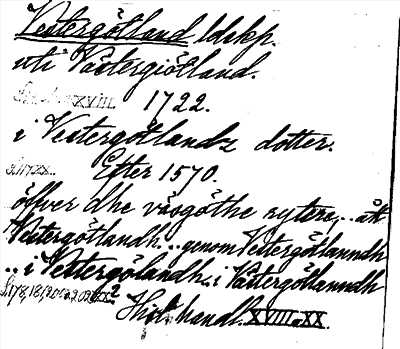 Vestergötland ldskp.
uti Västergiötland.
XVIII. 1722.
i Vestergötlandz dotter.
Efter 1570.
öffver dhe väsgöthe rytere,.. ått
Vestergötlandh... genom Vestergötlanndh
.. i Vestergölandh.. i Västergötlanndh
Hist. handl. XVIII. XX.